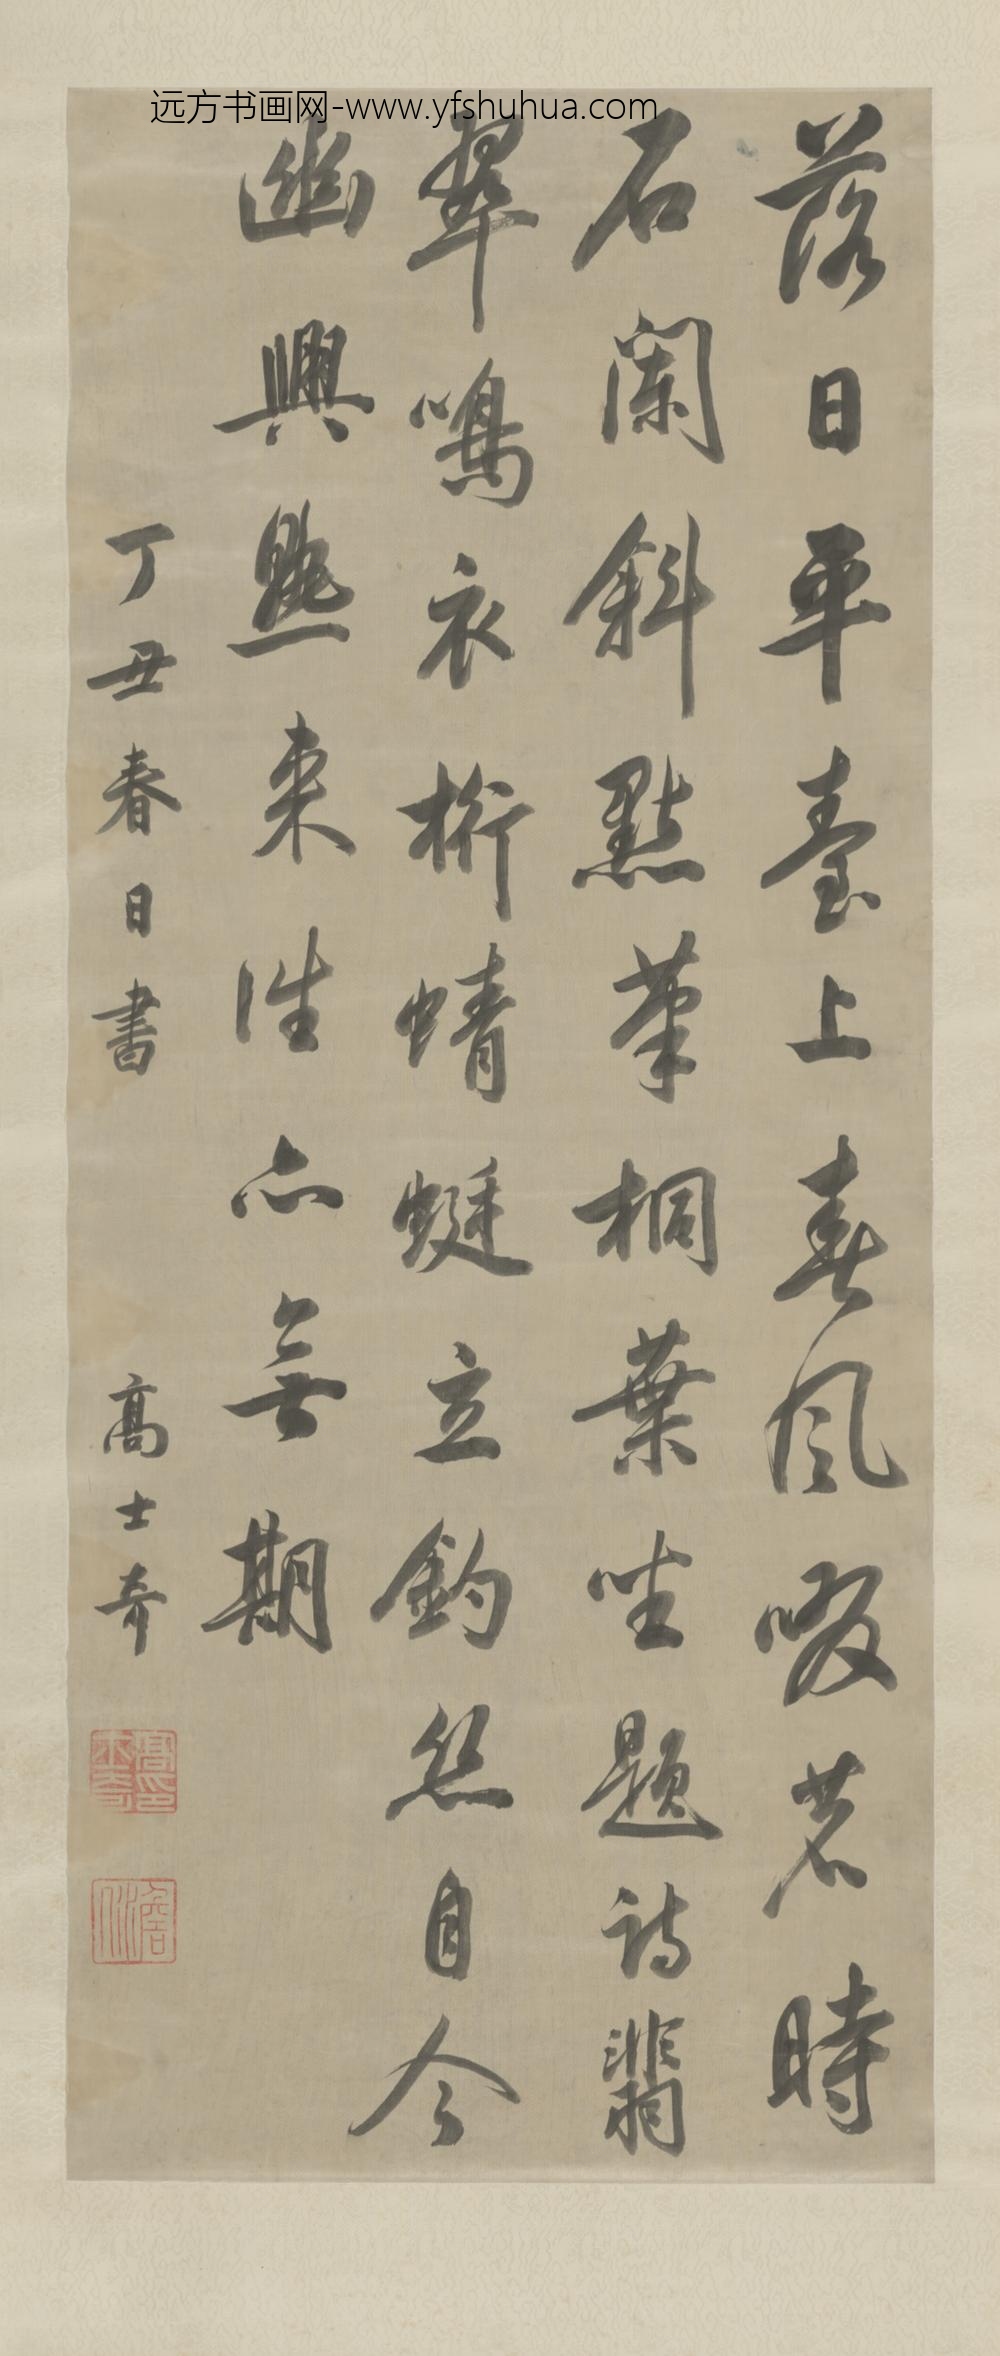 远方书画网-www.yfshuhua.com
落日平臺上春風啜茗時
石闌斜點筆桐葉坐題詩翡
翠鳴衣桁蜻蜓立釣絲自今
幽興熟来往亦無期
丁丑春日書
高士奇